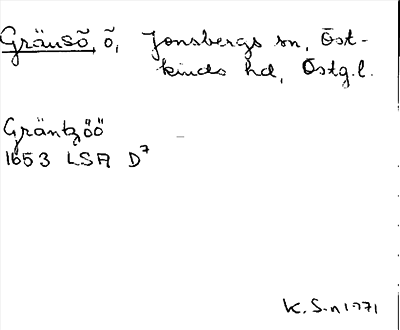 Gränsö, ö, Jonsbergs sn, Öst-
kinds hd, Östg.l.
Gräntzöö
1653 LSA D7
K. S-n 1971